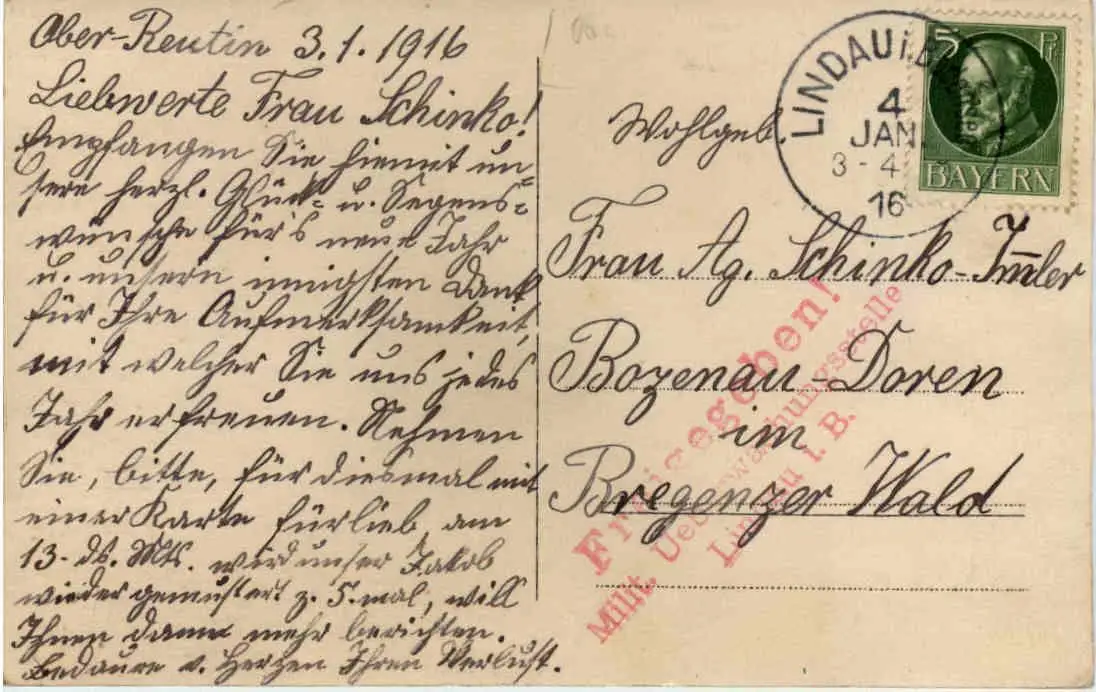 Ober-Reutin 3.1.1916
Liebwerte Frau Schinko!
Empfangen Sie hiemit un=
sere herzl. Glück= u. Segens=
wünsche für's neue Jahr
u. unsern innigsten Dank
für Ihre Aufmerksamkeit,
mit welcher Sie uns jedes
Jahr erfreuen. Nehmen
Sie, bitte, für diesmal mit
einer Karte fürlieb am
13. ds. Mts. wird unser Jakob
wieder gemustert z. 5. mal, will
Ihnen dann mehr berichten.
Bedaure v. Herzen Ihren Verlust.
LINDAU i. B.
4
JAN
3-4
16
5 Pf
BAYERN
Wohlgeb.
Frau Ag. Schinko-Imler
Bozenau-Doren
im
Bregenzer Wald
Freigegeben!
Milit. Ueberwachungsstelle
Lindau i. B.